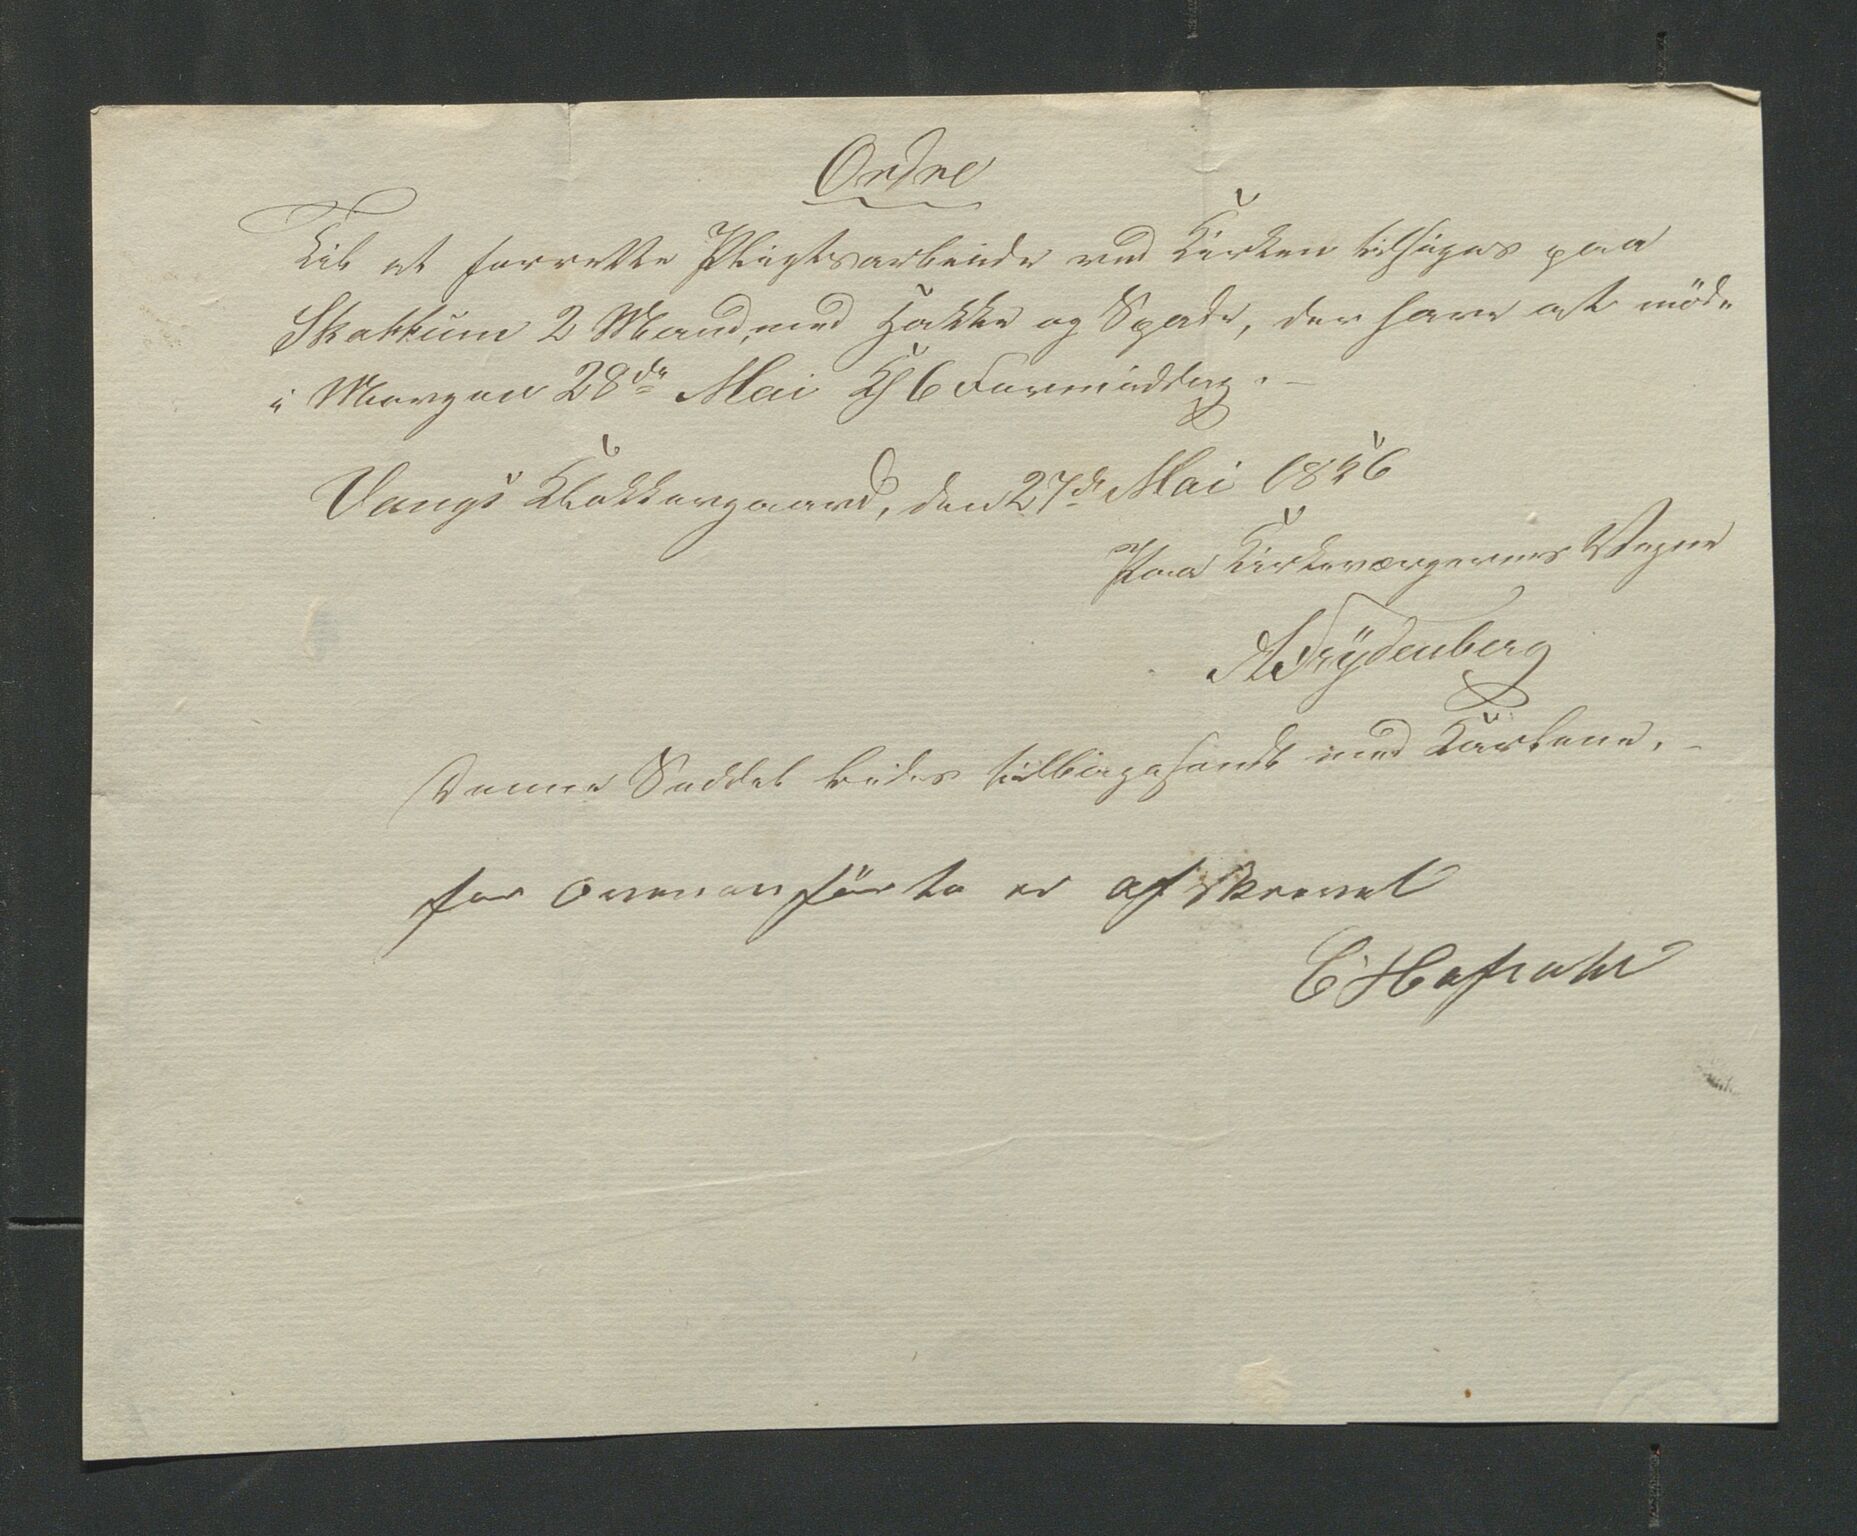 Ordre
Til at forrette Pligtsarbeide ved Kirken tilsiges paa
Skattum 2 Mand, med Hakke og Spade, der have at møde
i Morgen 28de Mai Kl 6 Formiddag.
Vangs Klokkergaard, den 27de Mai 1846
Paa Kirkeværgernes Vegne
A Frÿdenberg
Denne Seddel bedes tilbagesendt med Karlene.
for ovenanførte er afskrevet